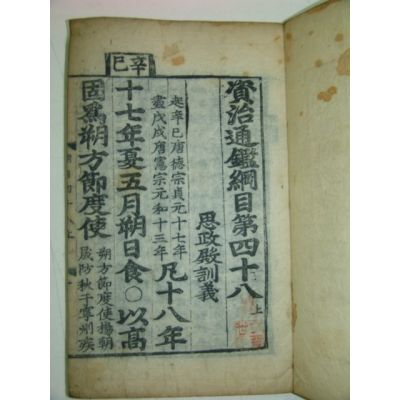 資治通鑑綱目第四十八上
思政殿訓義
起辛巳唐德宗貞元十七年
盡戊戌唐憲宗元和十三年
凡十八年
辛巳
十七年夏五月朔日食○以高
固爲朔方節度使
朔方節度使楊朝
晟防秋于寧州疾